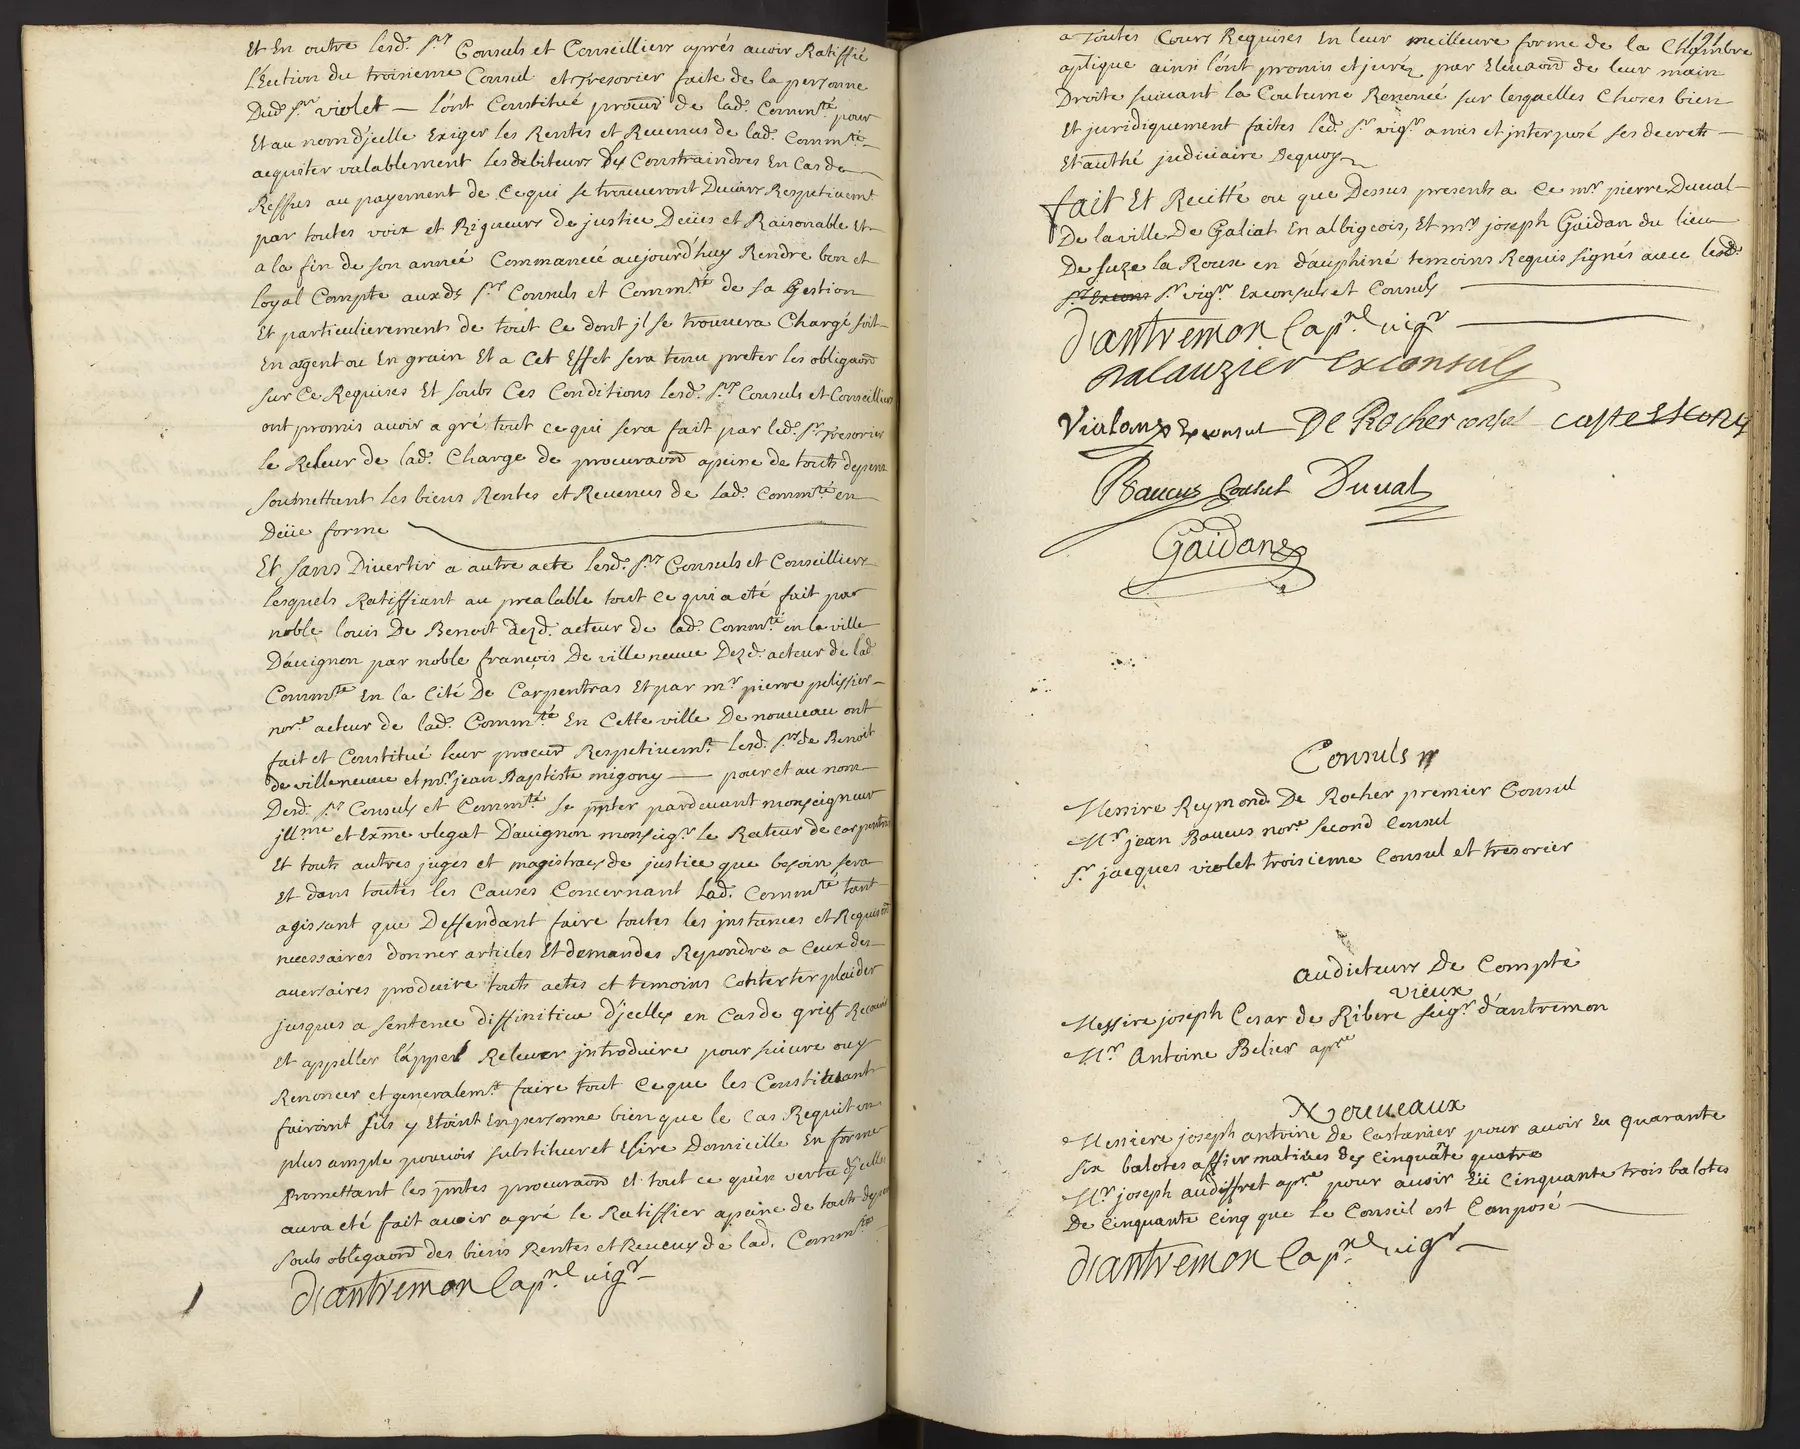 Et En outre lesd. srs Consuls et Conseilliers aprés avoir Ratiffié
L'Ection du troisieme Consul et Tresorier faite de la personne
Dud. sr violet — l'ont Constitué procur de lad. Commté pour
Et au nom d'jcelle Exiger les Rentes et Revenus de lad. Commté
acquiter valablement les debiteurs les Constraindres En Cas de
Reffus au payement de Ce qui se trouveront Devoirs Respetivemt
par toutes voix et Rigueurs de justice Deües et Raisonable Et
a la fin de son année Commancée aujourd'huy Rendre bon et
Loyal Compte auxds srs Consuls et Commté de sa Gestion
Et particulierement de tout Ce dont jl se trouvera Chargé soit
En argent ou En grain Et a Cet Effet sera tenu preter les obligaons
sur Ce Requises Et soubs Ces Conditions lesd. srs Consuls et Conseilliers
ont promis avoir a gré tout ce qui sera fait par led. sr Tresorier
le Releur de lad. Charge de procuraon apeine de touts depens
soumettant les biens Rentes et Revenus de lad. Commté en
Deüe forme
Et sans Divertir a autre acte lesd. srs Consuls et Conseilliers
lesquels Ratiffiant au prealable tout Ce qui a eté fait par
noble louis De Benoit dezd. acteur de lad. Commté en la ville
D'avignon par noble françois De villeneuve Dezd. acteur de lad.
Commté En la Cité De Carpentras Et par mr pierre pelissier
nore acteur de lad. Commté En Cette ville De nouveau ont
fait et Constitué leur procur Respetivemt lesd. srs de Benoit
de villeneuve et mr jean Baptiste migony — pour et au nom
Desd. srs Consuls et Commté se pnter pardevant monseigneur
jllme et Exme vlegat D'avignon monseigr le Rateur de carpentras
Et touts autres juges et magistraes de justice que besoin sera
Et dans toutes les Causes Concernant Lad. Commté tant
agissant que Deffendant faire toutes les jnstances et Requison
necessaires donner articles Et demandes Repondre a Ceux des
aversaires produire touts actes et temoins Contester plaider
jusques a sentence diffinitive d'jcelles en Cas de grief Recourir
Et appeller l'appel Relever jntroduire poursuivre ou y
Renoncer et generalemt faire tout Ce que les Constituant
fairoint sils y Etoint En personne bien que le Cas Requit un
plus ample pouvoir substituer et Elire Domicille En forme
Promettant les pntes procuraon et tout ce qu'en vertu d'jcelles
aura eté fait avoir agré le Ratiffier apeine de touts depens
soubs obligaon des biens Rentes et Revenus de lad. Commté
D'antremon Capnel vigr
121
a Toutes Cours Requises En leur meilleure forme de la Chambre
aplique ainsi l'ont promis et juréz par Elevaon de leur main
Droite suivant la Coutume Renoncé sur lesquelles Choses bien
Et juridiquement faites led. sr vigr a mis et jnterposé ses decrets
Et authé judiciaire Dequoy
fait Et Recitté ou que Dessus presents a Ce mr pierre Duval
De la ville De Galiat En albigeois, Et mr joseph Gaidan du lieu
De suze la Rousse en dauphiné temoins Requis signés avec lesd.
srs Excons sr vigr Exconsuls et Consuls
D'antremon Capnel vigr
Dalauzier Exconsul
Vialons Exconsul De Rocher consul
Baucus Consul Duval
Gaidan
Consuls
Messire Reymond De Rocher premier Consul
Mr jean Baucus nore second Consul
sr jacques violet troisieme Consul et tresorier
audicteurs De Compte
vieux
Messire joseph Cesar de Ribere seigr d'antremon
Mr Antoine Belier apre
Nouveaux
Messire joseph antoine de Castanier pour avoir Eu quarante
six balotes affirmatives des Cinquāte quatre
Mr joseph audiffret apre pour avoir Eü Cinquante trois balotes
De Cinquante Cinq que le Conseil est Composé
D'antremon Capnel vigr